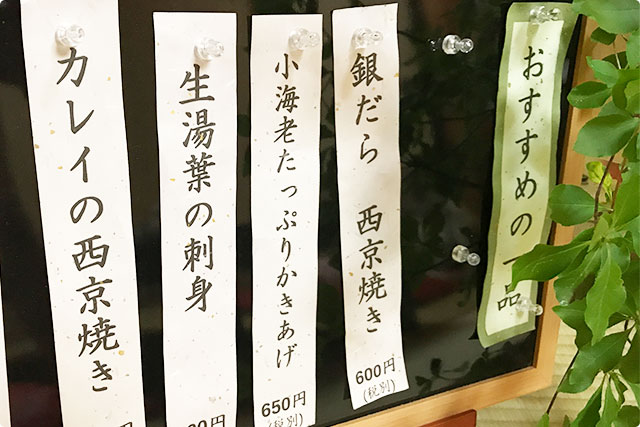 おすすめの一品
銀だら 西京焼き
600円
(税別)
小海老たっぷりかきあげ
650円
(税別)
生湯葉の刺身
00円
カレイの西京焼き
円